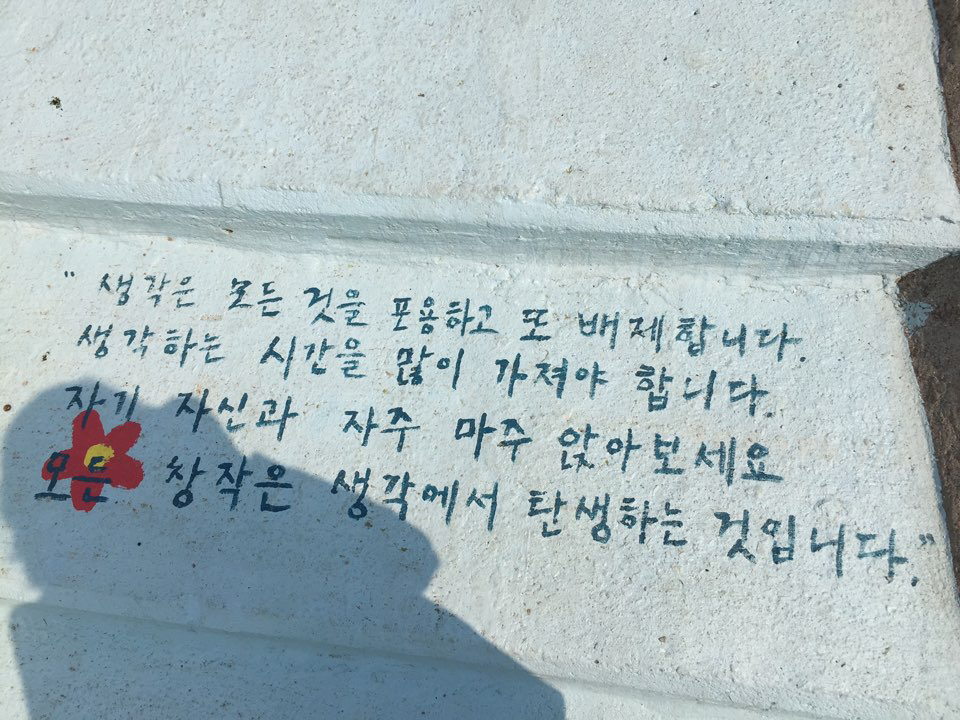 "생각은 모든 것을 포용하고 또 배제합니다.
생각하는 시간을 많이 가져야 합니다.
자기 자신과 자주 마주 앉아보세요
모든 창작은 생각에서 탄생하는 것입니다."